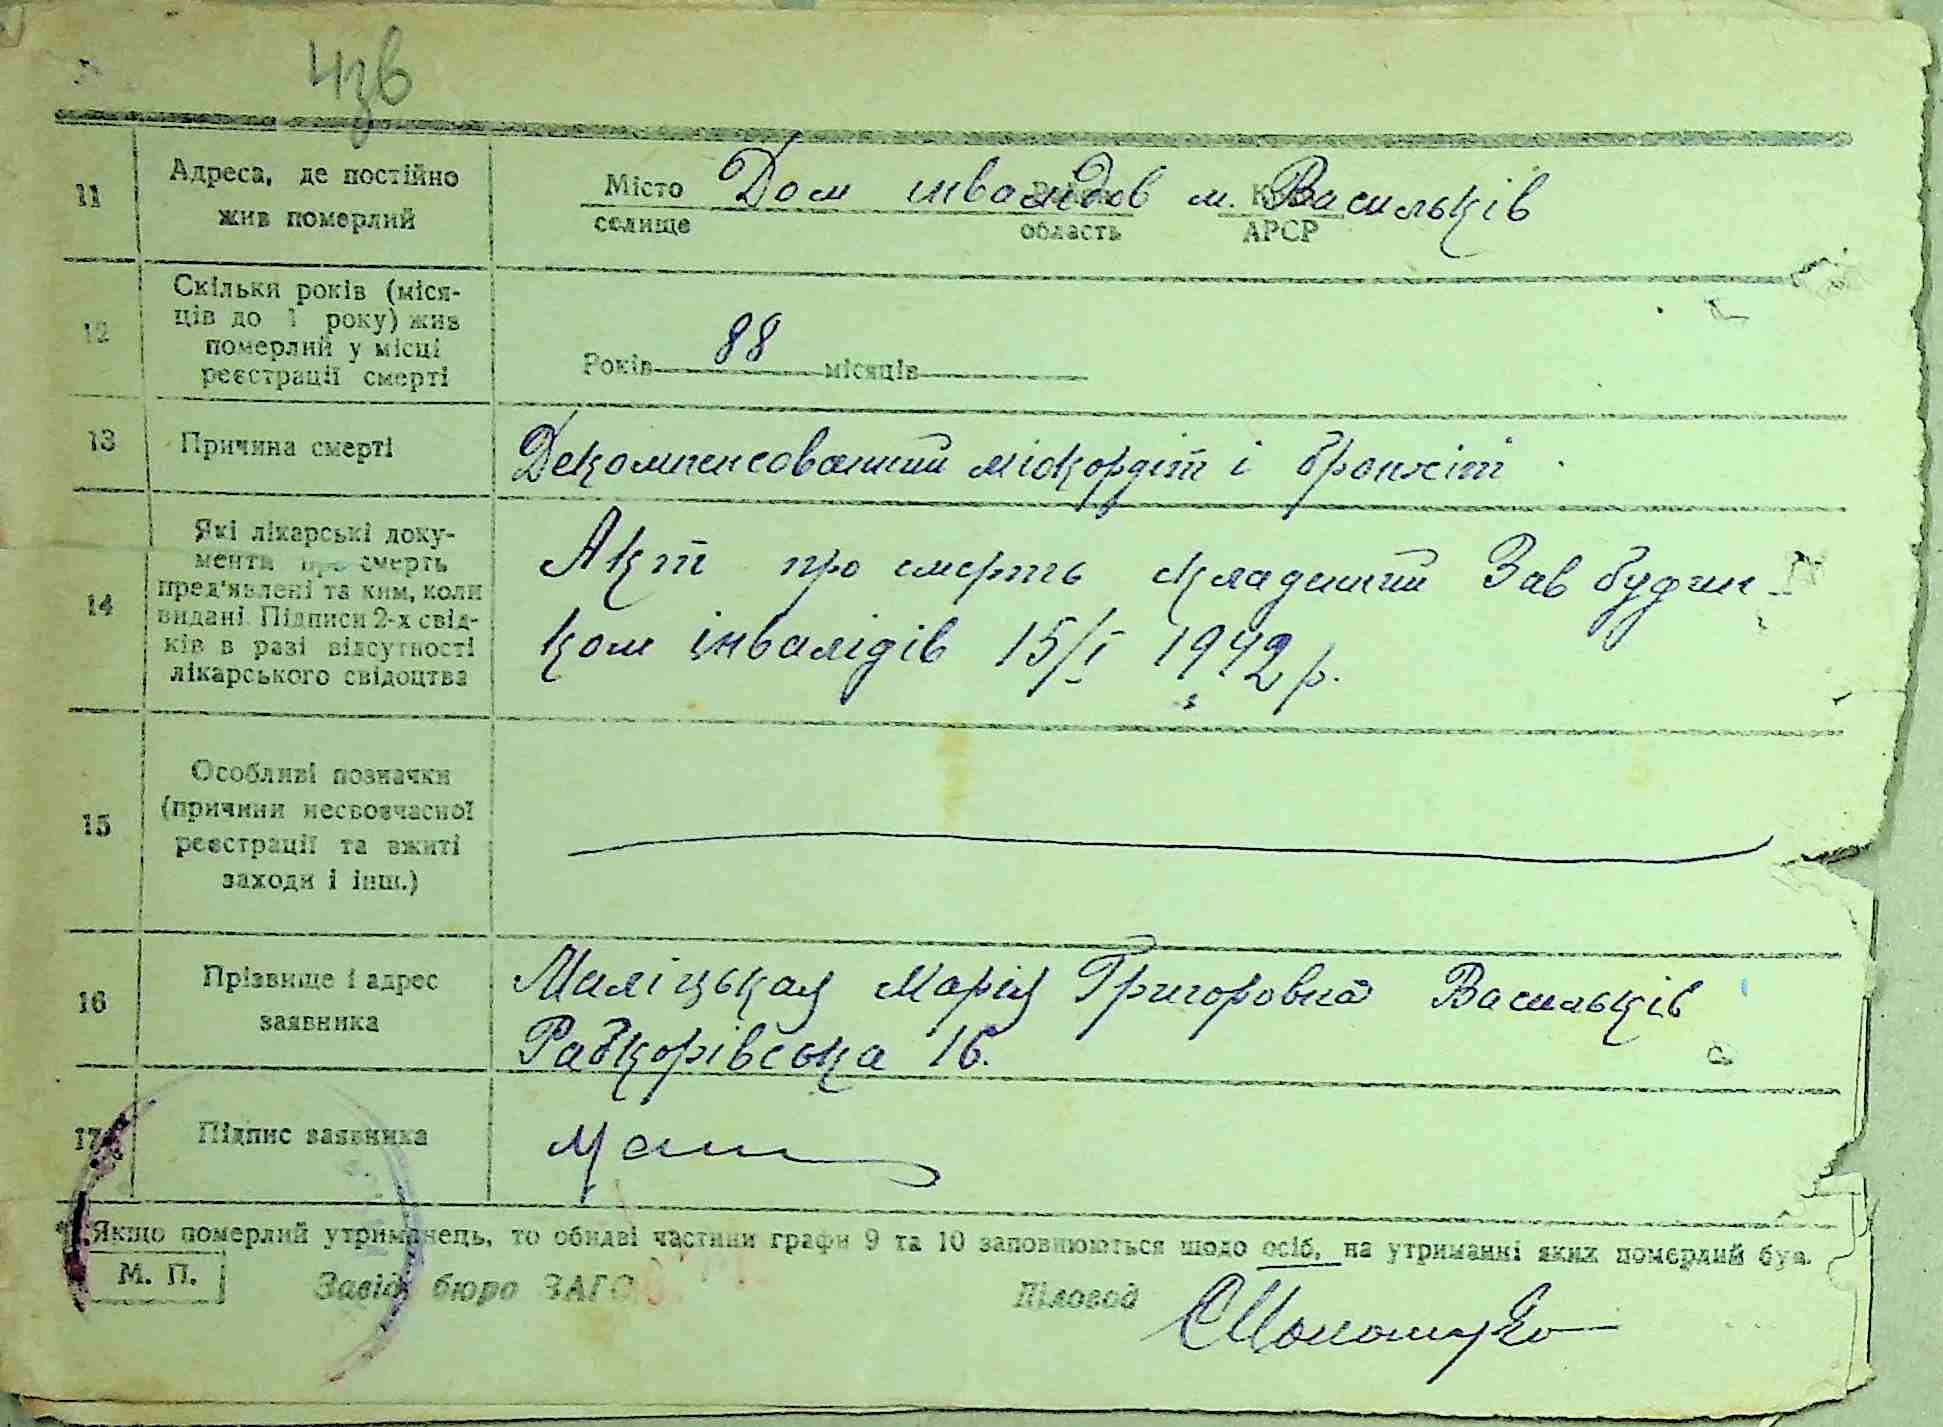 4зв
11 Адреса, де постійно жив померлий
Місто Дом инвалидов м. Васильків
селище область АРСР
12 Скільки років (міся-
ців до 1 року) жив
померлий у місці
реєстрації смерті
Років 88 місяців
13 Причина смерті Декомпенсованний міокордіт і бронхіт
14 Які лікарські доку-
менти про смерть
пред'явлені та ким, коли
видані. Підписи 2-х свід-
ків в разі відсутності
лікарського свідоцтва
Акт про смерть складений Зав будин-
ком інвалідів 15/I 1942 р.
15 Особливі позначки
(причини несвоєчасної
реєстрації та вжиті
заходи і інш.)
16 Прізвище і адрес
заявника
Маліцькая Марія Григоровна Васильків
Рабкорівська 16.
17 Підпис заявника
* Якщо померлий утриманець, то обидві частини графи 9 та 10 заповнюються щодо осіб, на утриманні яких померлий був.
М. П. Завід. бюро ЗАГС Діловод